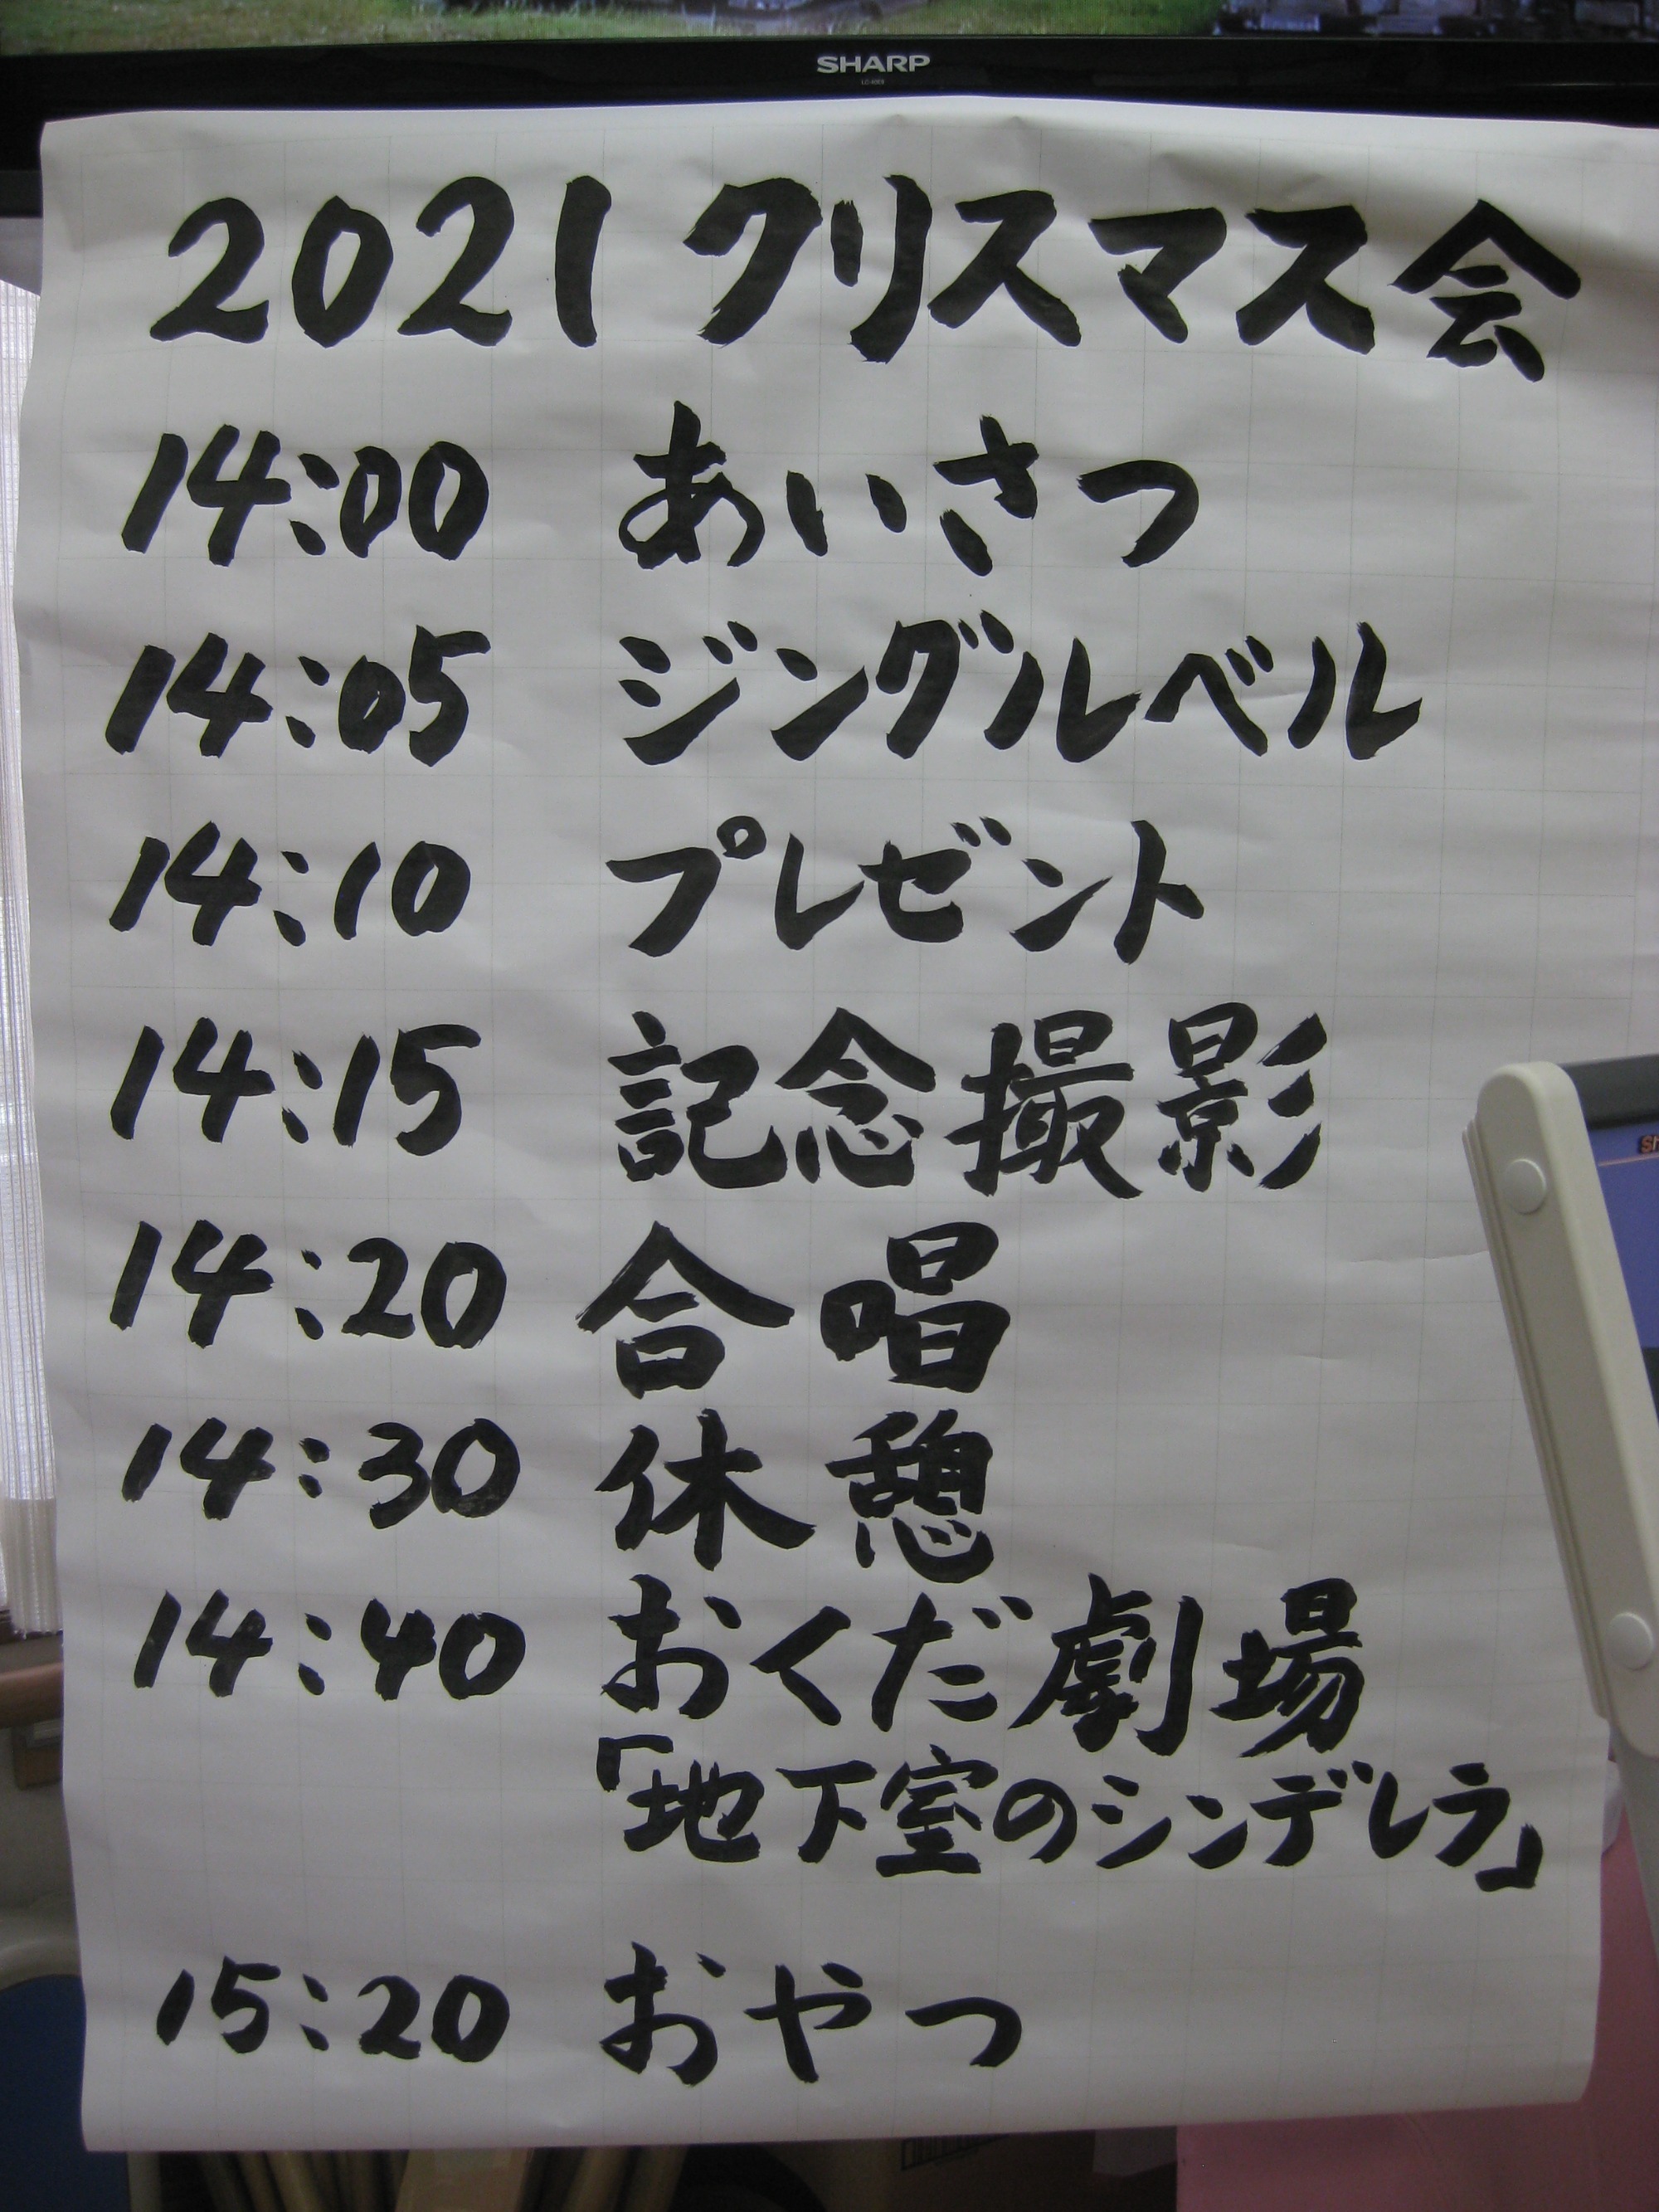 SHARP
2021 クリスマス会
14:00 あいさつ
14:05 ジングルベル
14:10 プレゼント
14:15 記念撮影
14:20 合唱
14:30 休憩
14:40 おくだ劇場
「地下室のシンデレラ」
15:20 おやつ